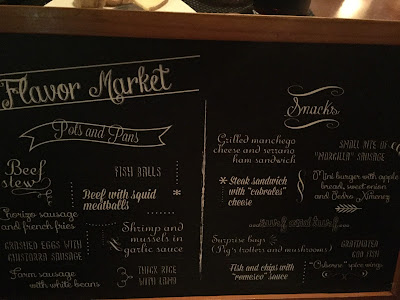 Flavor Market
Pots and Pans
Beef
stew
FISH BALLS
Beef with squid
meatballs
Chorizo sausage
and french fries
Shrimp and
mussels in
garlic sauce
CRASHED EGGS WITH
CHISTORRA SAUSAGE
Farm sausage
with white beans
THICK RICE
WITH LAMB
Snacks
Grilled manchego
cheese and serrano
ham sandwich
SMALL BITE OF
"MORCILLA" SAUSAGE
* Steak sandwich
with "cabrales"
cheese
Mini burger with apple
bread, sweet onion
and Pedro Ximenez
...surf and turf...
Surprise bags
(Pig's trotters and mushrooms)
GRATINATED
COD FISH
Fish and chips with
"romesco" sauce
spicy wings